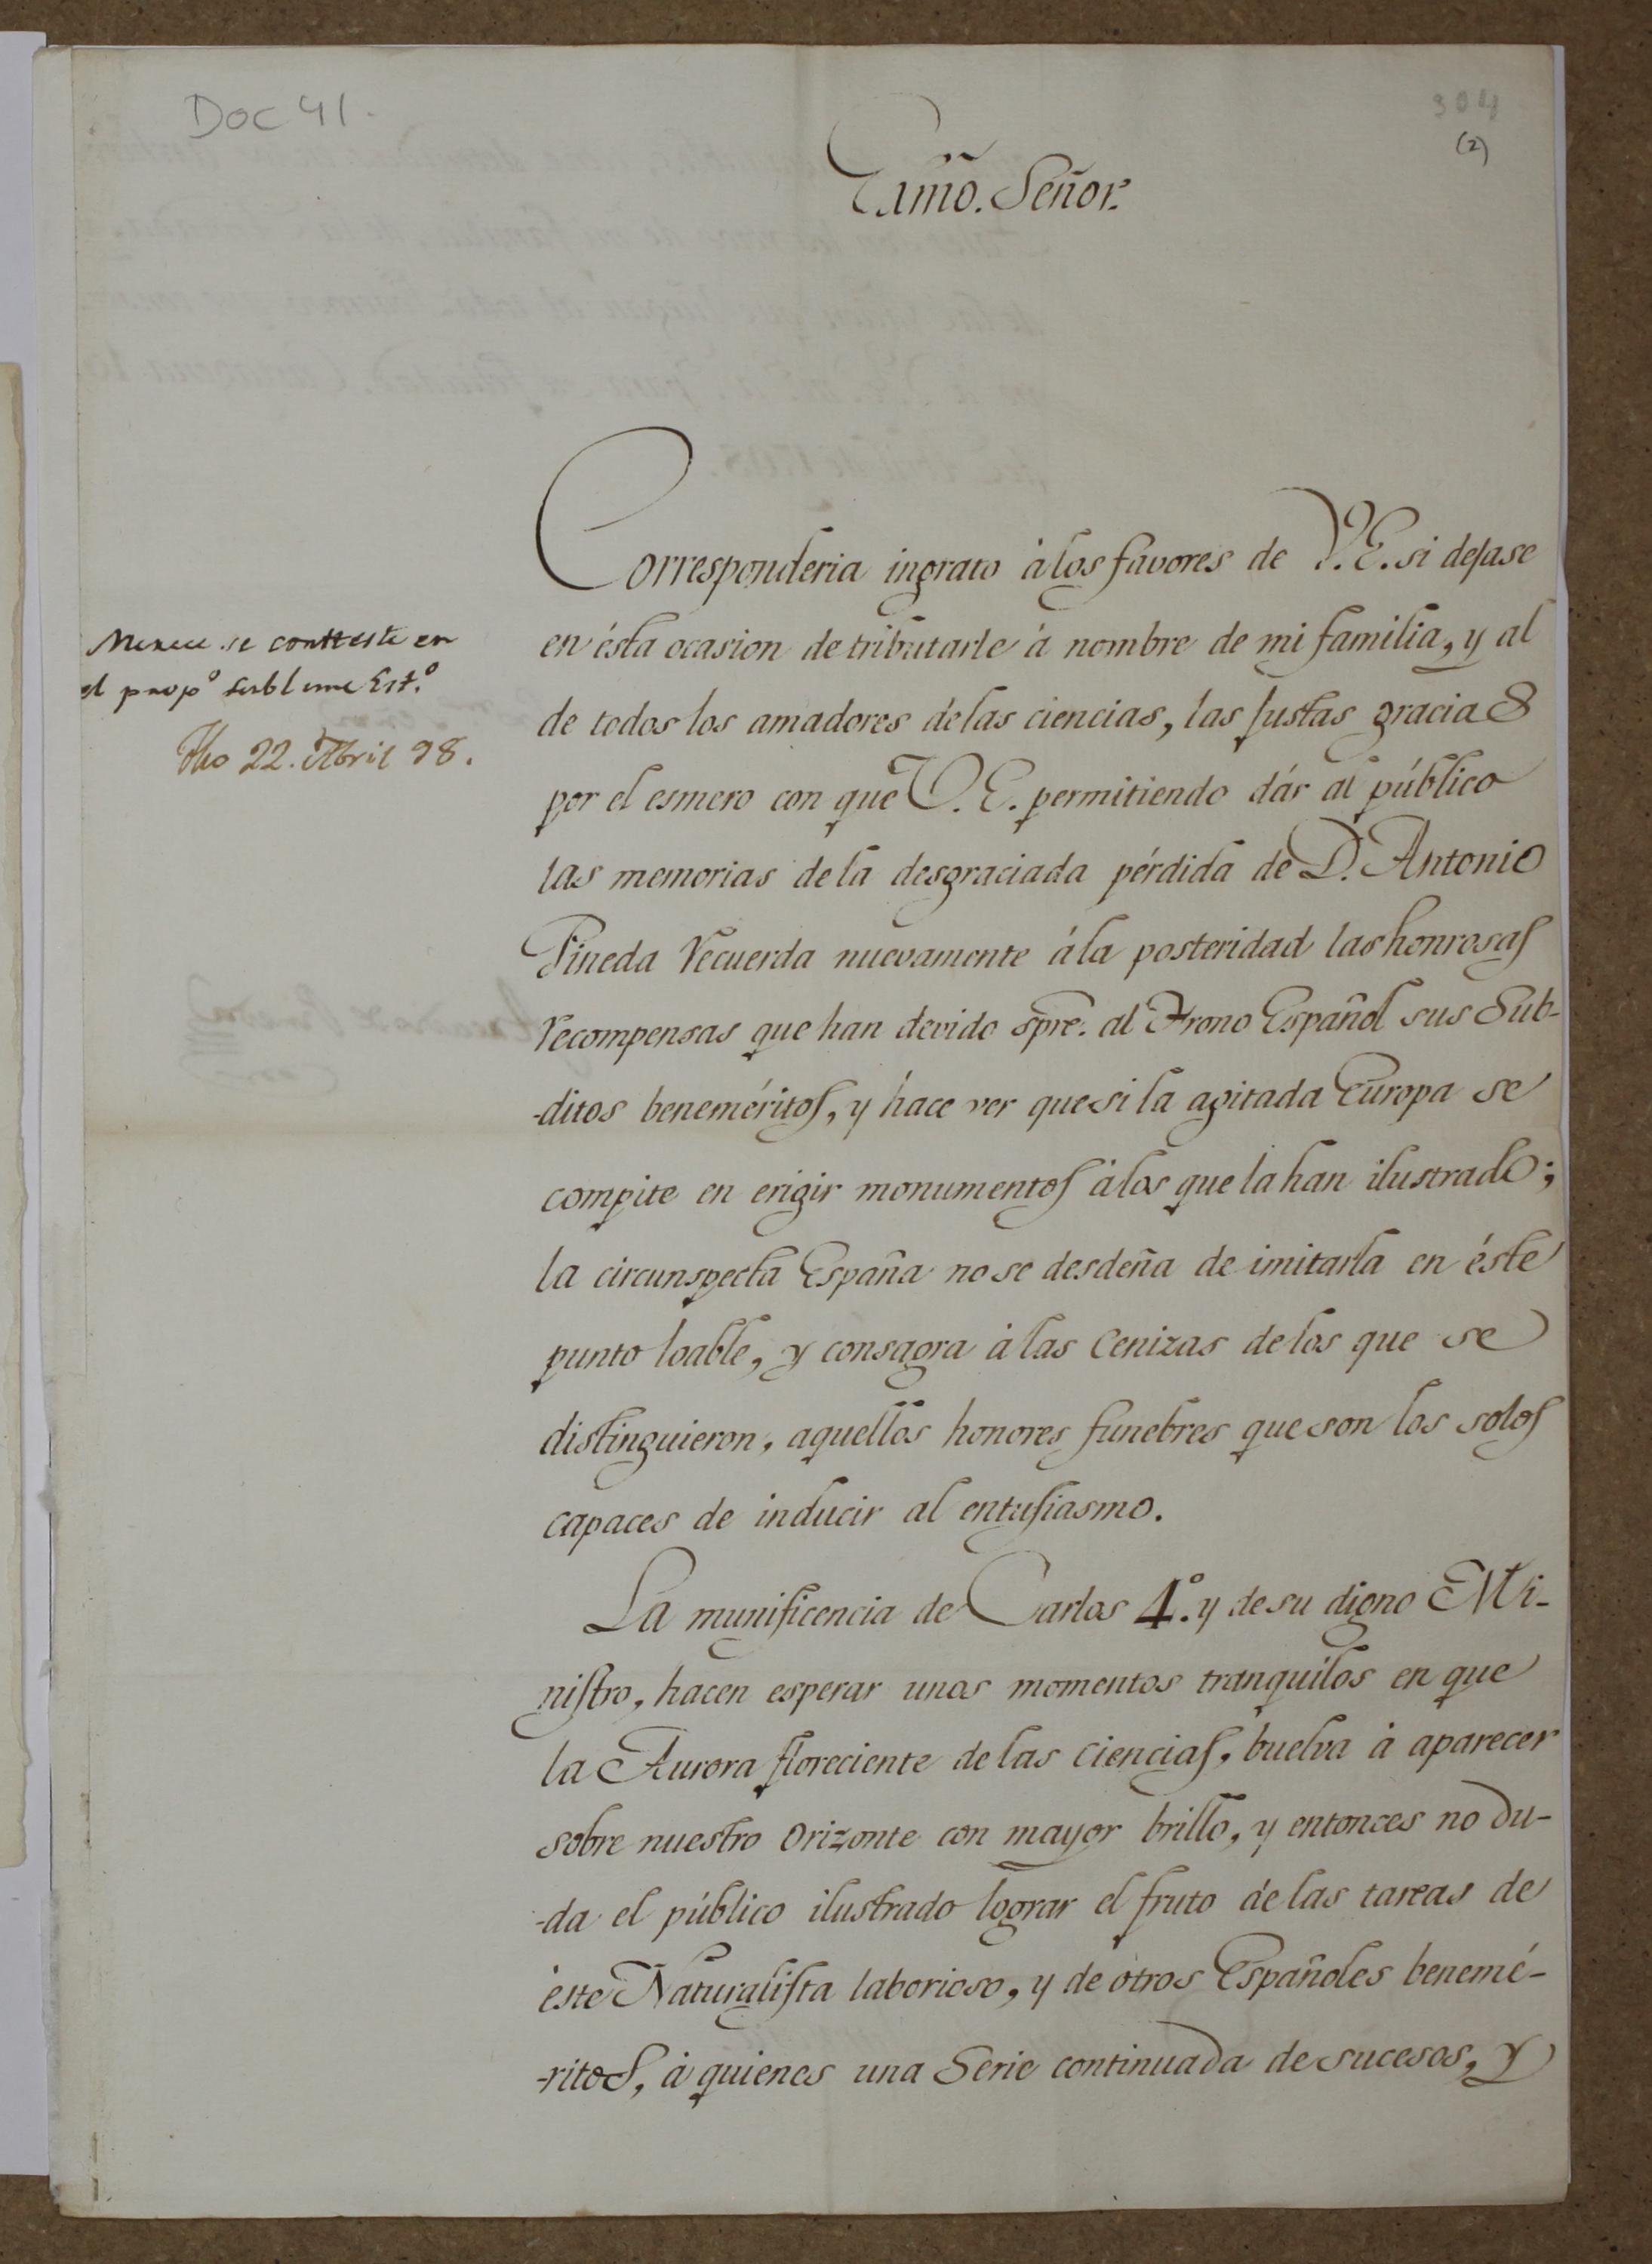 Doc 41.
304
(2)
Exmõ. Señor.
Corresponderia ingrato à los favores de V.E. si dejase
en ésta ocasion de tributarle à nombre de mi familia, y al
de todos los amadores de las ciencias, las justas gracias
por el esmero con que V.E. permitiendo dár al público
las memorias de la desgraciada pérdida de D. Antonio
Pineda recuerda nuevamente à la posteridad las honrosas
recompensas que han devido spre. al Trono Español sus Sub-
-ditos beneméritos, y hace ver que si la agitada Europa se
compite en erigir monumentos à los que la han ilustrado;
la circunspecta España no se desdeña de imitarla en éste
punto loable, y consagra à las Cenizas de los que se
distinguieron, aquellos honores funebres que son los solos
capaces de inducir al entusiasmo.
La munificencia de Carlos 4º. y de su digno Mi-
nistro, hacen esperar unos momentos tranquilos en que
la Aurora floreciente de las ciencias, buelva à aparecer
sobre nuestro Orizonte con mayor brillo, y entonces no du-
-da el público ilustrado lograr el fruto de las tareas de
éste Naturalista laborioso, y de otros Españoles benemé-
-ritos, à quienes una Serie continuada de sucesos, y
Merece se contteste en
el propº sublime Estº.
Fho 22. Abril 98.